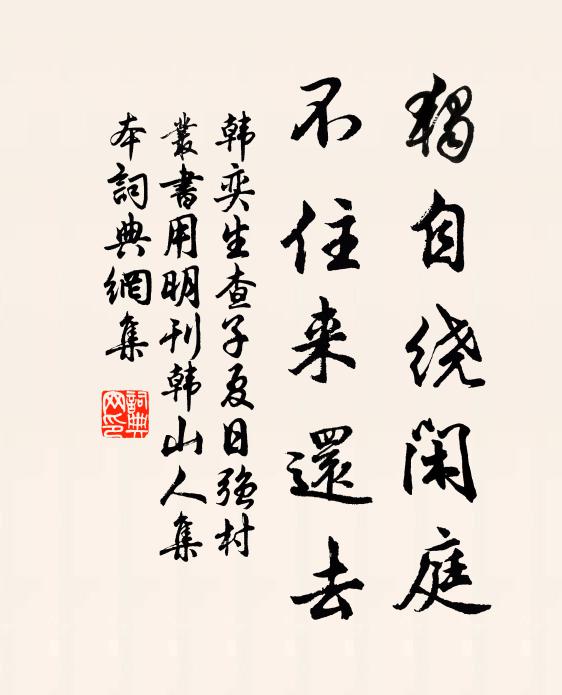 獨自绕閑庭
不住来還去
韩奕生查子夏日强村
叢書用明刊韩山人集
本詞典網集
詞典网印